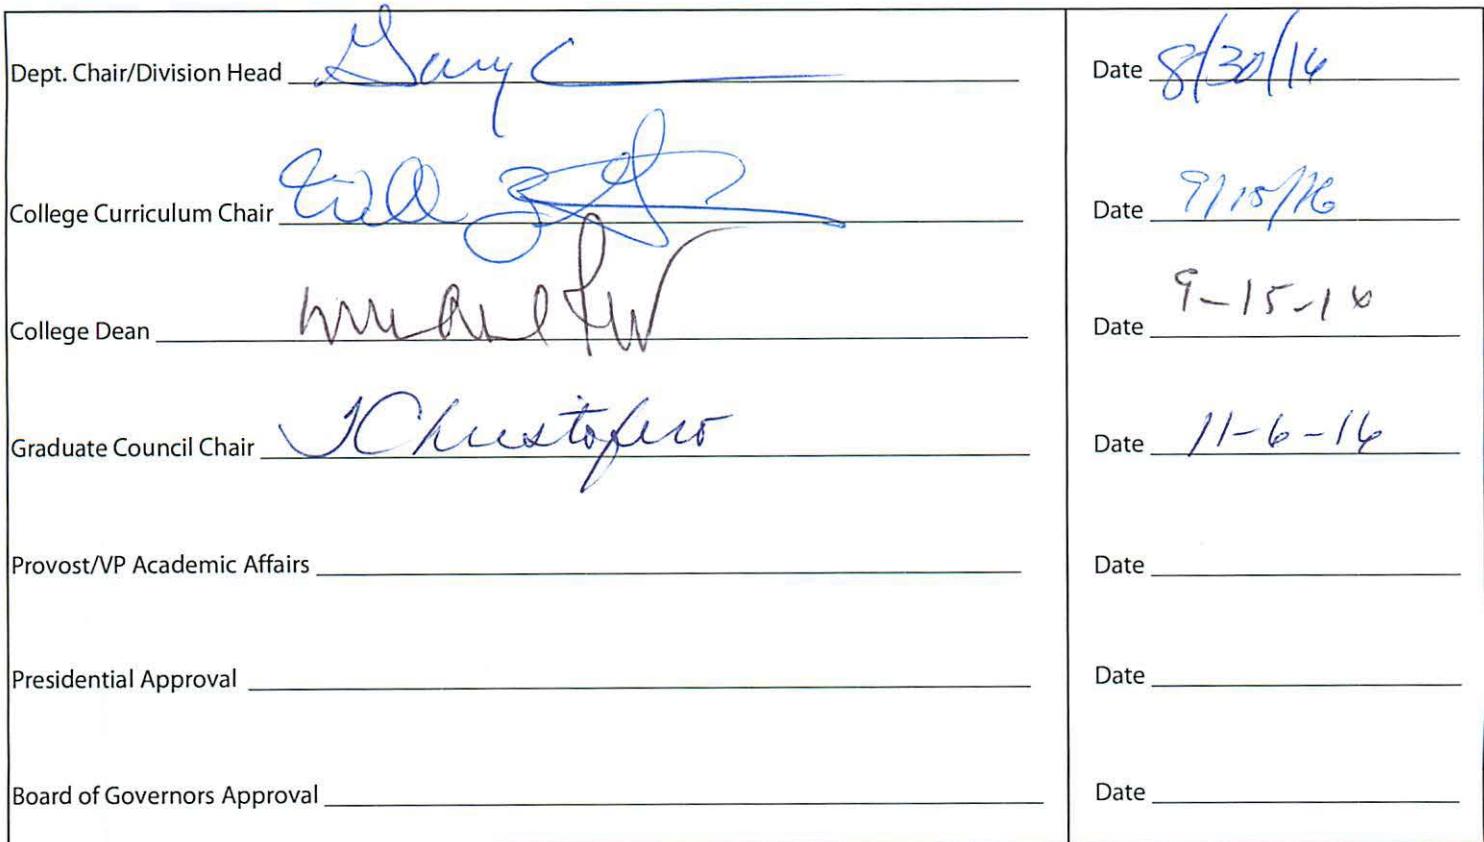 Dept. Chair/Division Head Gary C Date 8/30/16
College Curriculum Chair Date 9/15/16
College Dean Date 9-15-16
Graduate Council Chair TChristofero Date 11-6-16
Provost/VP Academic Affairs Date
Presidential Approval Date
Board of Governors Approval Date